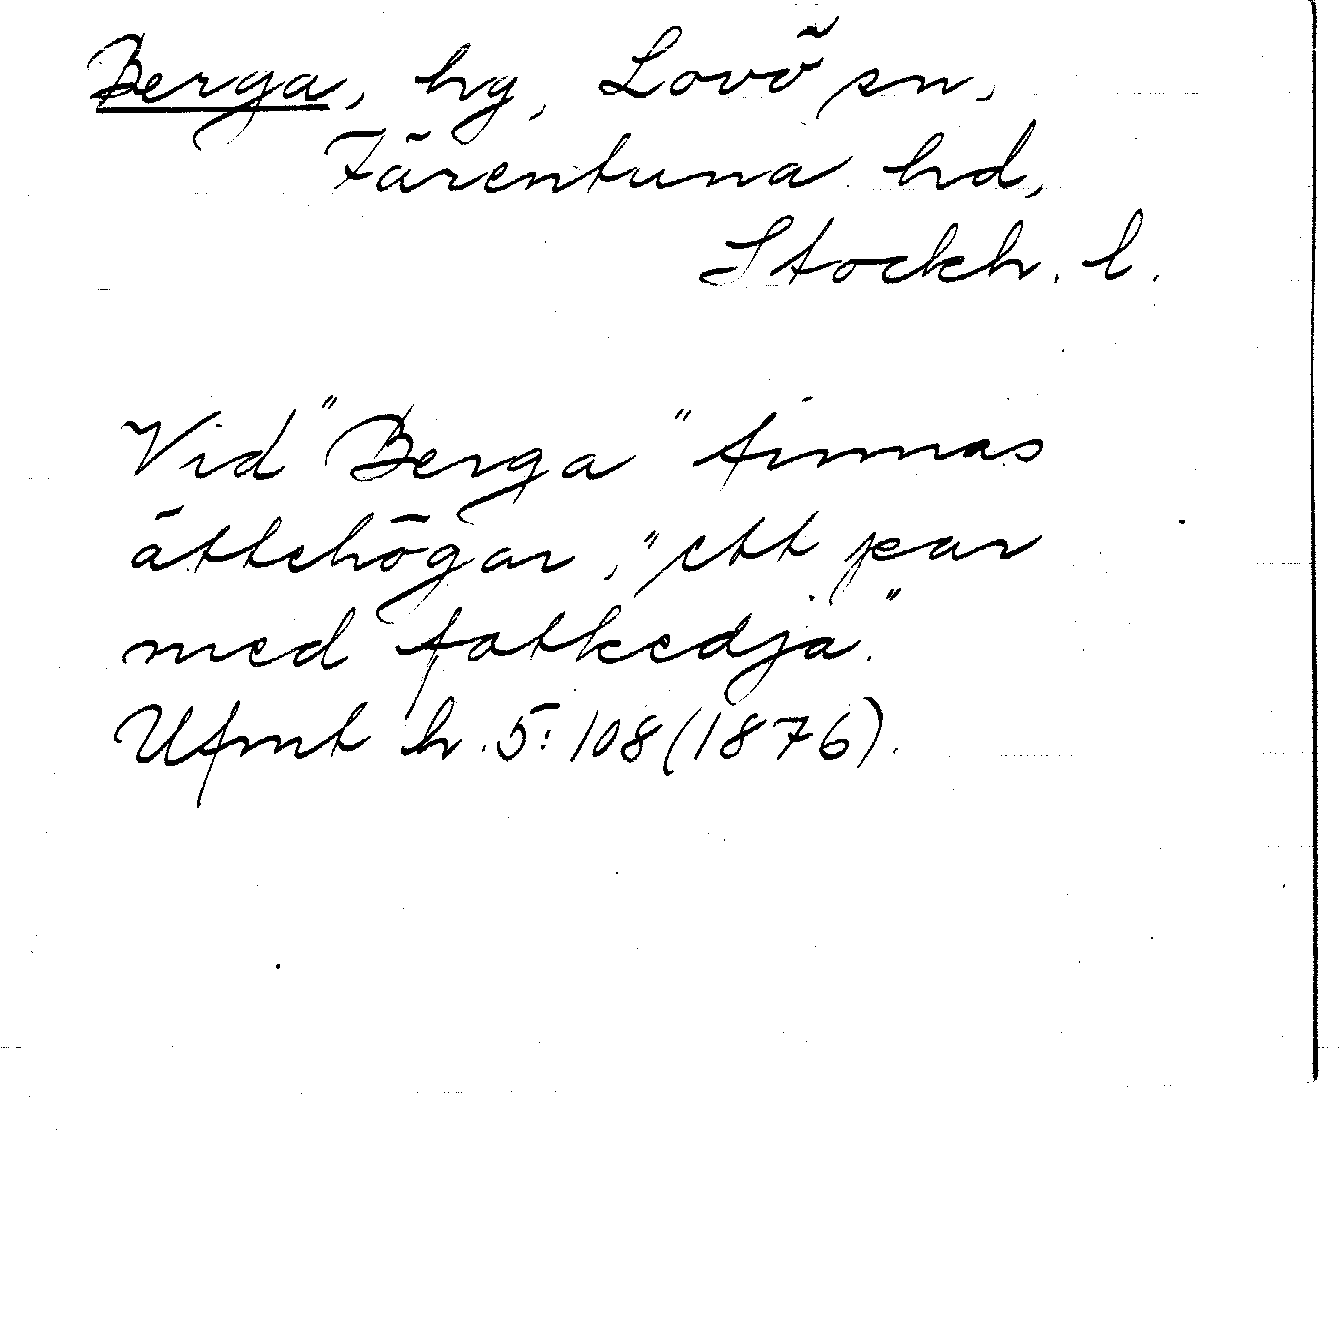 Berga, hg, Lovö sn,
Färentuna hd,
Stockh. l.
Vid "Berga" finnas
ättehögar, "ett par
med fotkedja."
Ufmt h. 5: 108 (1876).